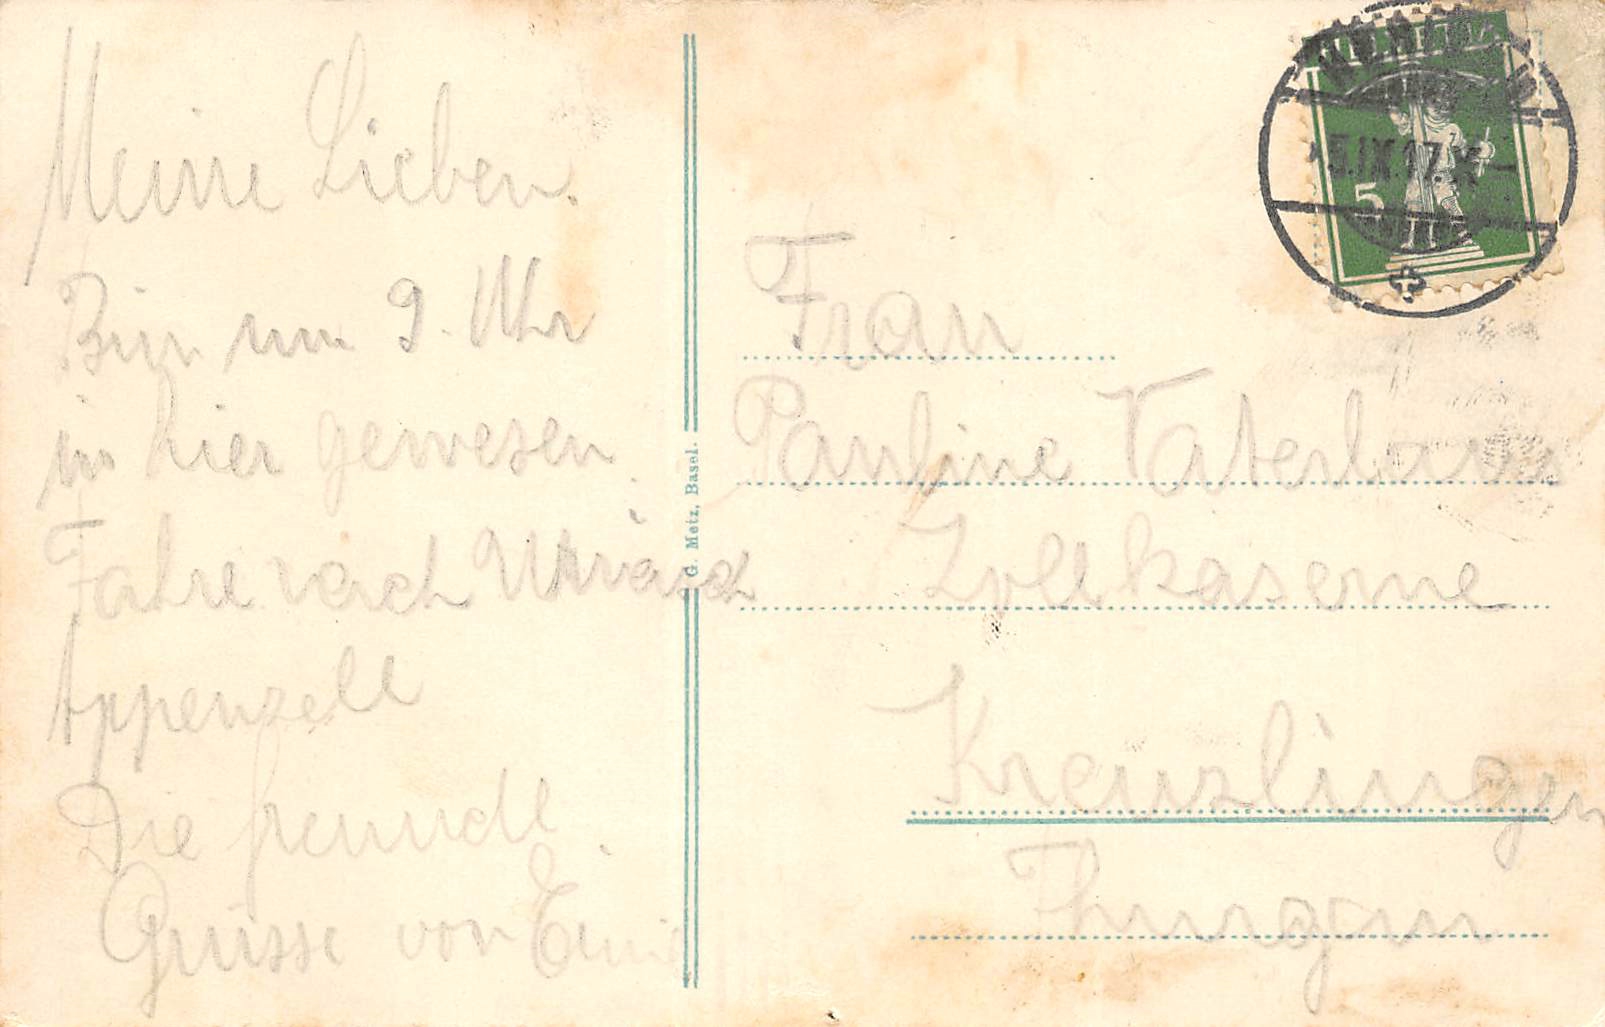 Meine Lieben.
Bin um 9. Uhr
in hier gewesen
Fahre nach Urnäsch
Appenzell
Die freundl
Grüsse von
G. Metz, Basel.
HELVETIA
5
5.IX.17.
Frau
Pauline
Zollkaserne
Kreuzlingen
Thurgau